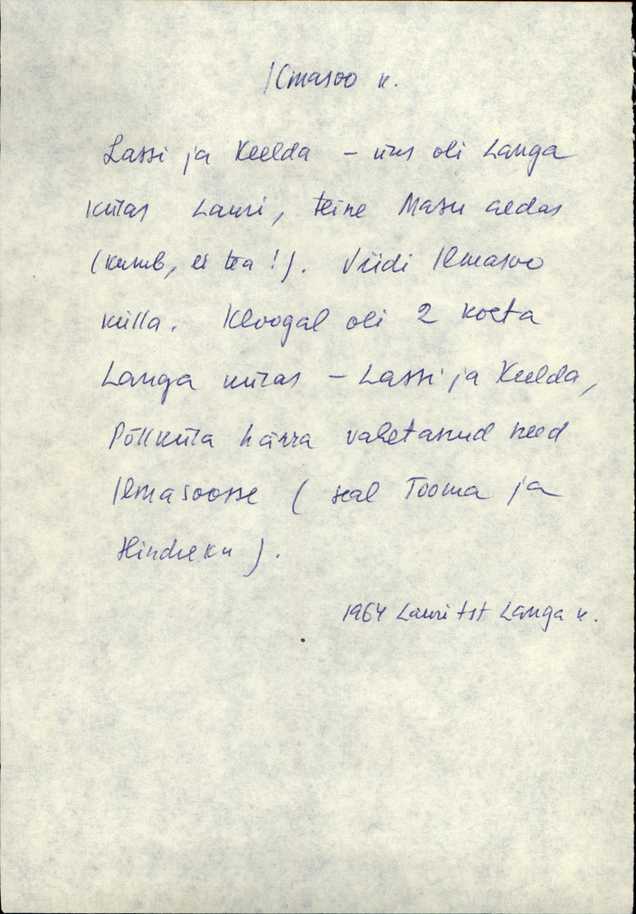 Ilmasoo k.
Lassi ja Keelda – üks oli Langa
külas Lauri, teine Masu aedas
(kumb, ei tea!). Viidi Ilmasoo
külla. Kloogal oli 2 kohta
Langa külas – Lassi ja Keelda,
Põllküla härra vahetanud need
Ilmasoosse (seal Tooma ja
Hindreku).
1964 Lauri tst Langa k.